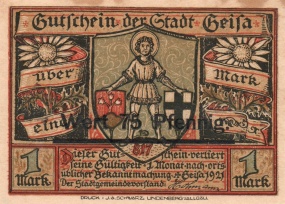 Gutschein der Stadt Geisa
über
Mark
eine
Wert 75 Pfennig.
817
Dieser Gutschein verliert
seine Gültigkeit 1 Monat nach orts
üblicher Bekanntmachung. Geisa 1921
Der Stadtgemeindevorstand
1
Mark
1
Mark
DRUCK J.A. SCHWARZ, LINDENBERG I. ALLGÄU.